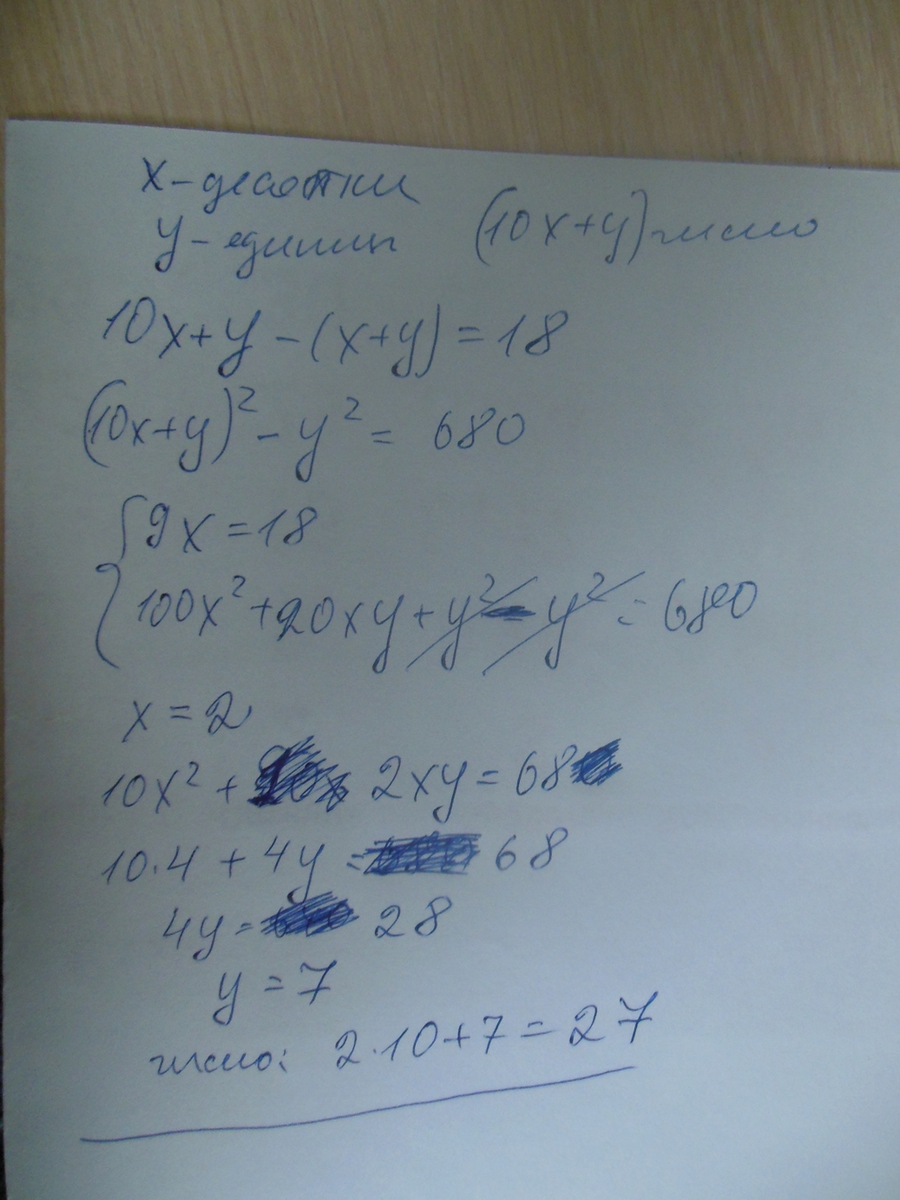 x - десятки
y - единиц (10x+y) число
10x+y - (x+y) = 18
(10x+y)² - y² = 680
{ 9x = 18
100x² + 20xy + y² - y² = 680
x = 2
10x² + 2xy = 68
10·4 + 4y = 68
4y = 28
y = 7
число: 2·10+7 = 27